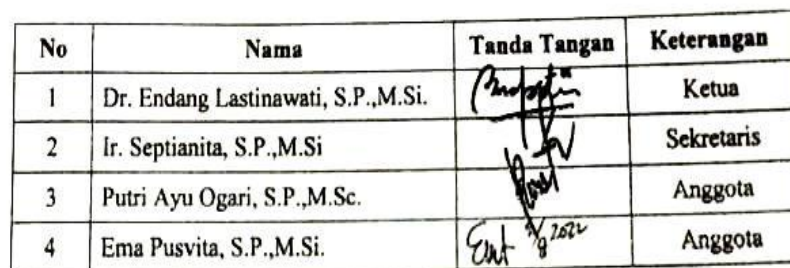 No Nama Tanda Tangan Keterangan
1 Dr. Endang Lastinawati, S.P.,M.Si. Ketua
2 Ir. Septianita, S.P.,M.Si Sekretaris
3 Putri Ayu Ogari, S.P.,M.Sc. Anggota
4 Ema Pusvita, S.P.,M.Si. 2022 Anggota